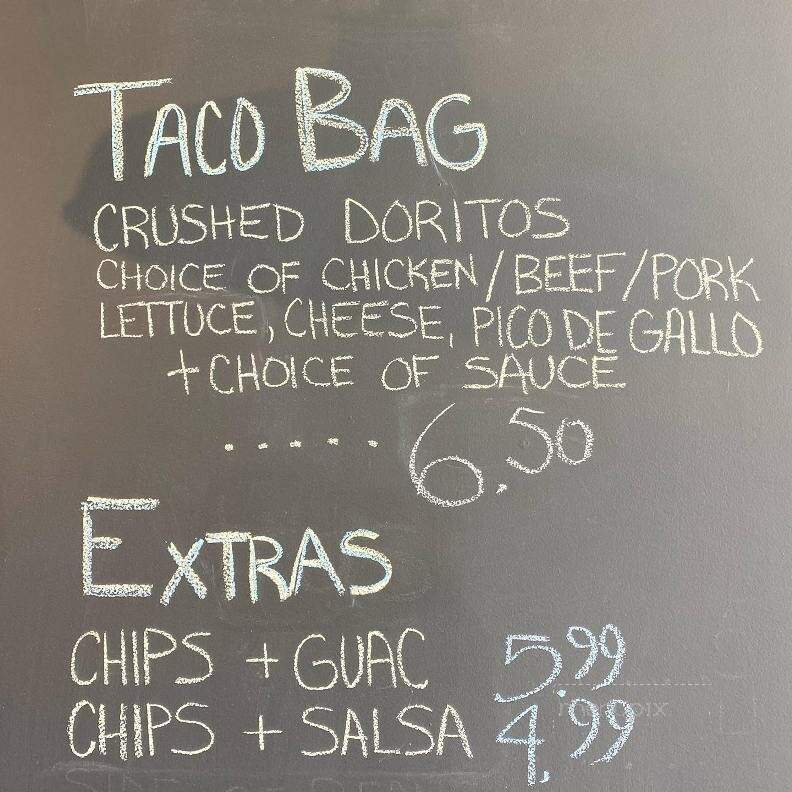 TACO BAG
CRUSHED DORITOS
CHOICE OF CHICKEN/BEEF/PORK
LETTUCE, CHEESE, PICO DE GALLO
+ CHOICE OF SAUCE
..... 6.50
EXTRAS
CHIPS + GUAC 5.99
CHIPS + SALSA 4.99